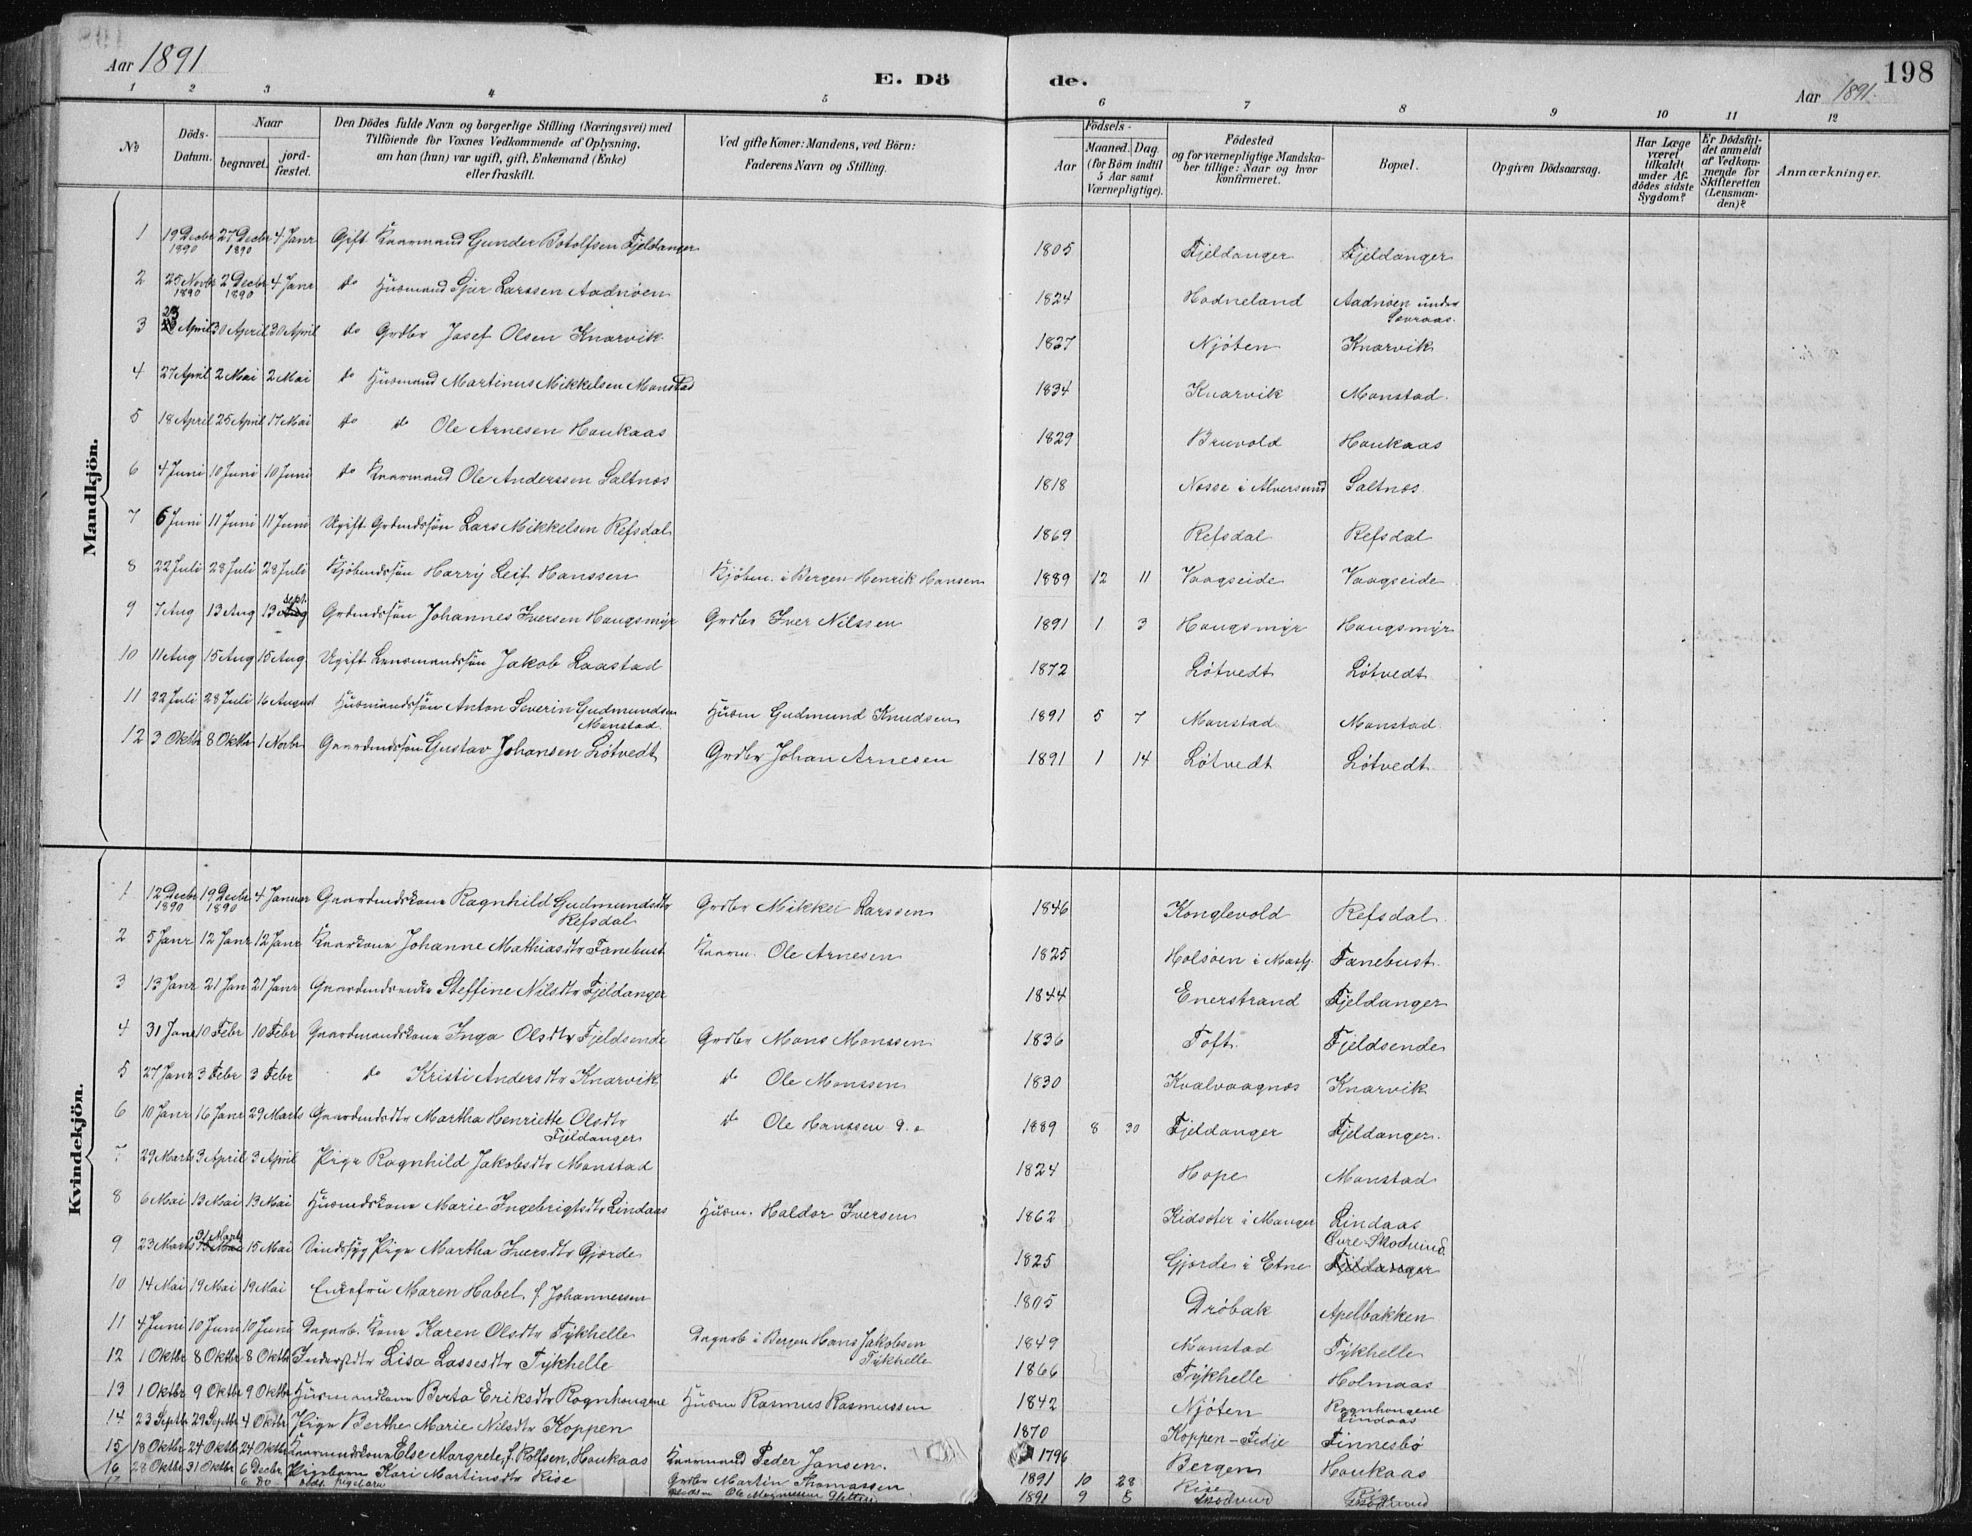 Aar 1891
E. Dö
de.
198
Aar 1891.
1 2 3 4 5 6 7 8 9 10 11 12
№
Döds-Datum.
Naar
begravet. jord-fæstet.
Den Dödes fulde Navn og borgerlige Stilling (Næringsvei) med
Tilföiende for Voxnes Vedkommende af Oplysning,
om han (hun) var ugift, gift, Enkemand (Enke)
eller fraskilt.
Ved gifte Koner: Mandens, ved Börn:
Faderens Navn og Stilling.
Födsels-
Aar Maaned. Dag.
(for Börn indtil
5 Aar samt
Værnepligtige).
Födested
og for værnepligtige Mandska-
ber tillige: Naar og hvor
konfirmeret.
Bopæl.
Opgiven Dödsaarsag.
Har Læge
været
tilkaldt
under Af-
dödes sidste
Sygdom?
Er Dödsfal-
det anmeldt
af Vedkom-
mende for
Skifteretten
(Lensman-
den)?
Anmærkninger.
Mandkjön.
1 19 Decbr 1890 27 Decbr 1890 4 Janr Gift Kaarmand Gunder Botolfsen Fjeldanger 1805 Fjeldanger Fjeldanger
2 25 Novbr 1890 2 Decbr 1890 4 Janr do Husmand Sjur Larssen Aadnøen 1824 Hodneland Aadnøen under
3 23 April 30 April 30 April do Grdbr Josef Olsen Knarvik 1827 Njöten Knarvik
4 27 April 2 Mai 2 Mai do Husmand Martinus Mikkelsen Monstad 1834 Knarvik Monstad.
5 18 April 25 April 17 Mai do do Ole Arnesen Haukaas 1829 Bruvold Haukaas
6 4 Juni 10 Juni 10 Juni do Kaarmand Ole Anderssen Saltnæs 1818 Nesse i Alversund Saltnæs
7 6 Juni 11 Juni 11 Juni Ugift Grdmdssøn Lars Mikkelsen Refsdal 1869 Refsdal Refsdal
8 22 Juli 28 Juli 28 Juli Kjöbmdssøn Harry Leif Hanssen Kjöbm. i Bergen Henrik Hansen 1889 12 11 Vaagseide Vaagseide
9 7 Aug 13 Aug 13 Sept. Grdmdssøn Johannes Iversen Haugsmyr Grdbr Iver Nilssen 1891 1 3 Haugsmyr Haugsmyr
10 11 Aug 15 Aug 15 Aug Ugift Lensmandssøn Jakob Laastad 1872 Løtvedt Løtvedt
11 22 Juli 28 Juli 16 August Husmandssøn Anton Severin Gudmundsen Monstad Husm Gudmund Knudsen 1891 5 7 Monstad Monstad
12 3 Oktbr 8 Oktbr 1 Novbr Gaardmdssøn Gustav Johansen Løtvedt Grdbr Johan Arnesen 1891 1 14 Løtvedt Løtvedt
Kvindekjön.
1 12 Decbr 1890 19 Decbr 1890 4 Januar Gaardmdskone Ragnhild Gudmundsdtr Refsdal Grdbr Mikkel Larssen 1846 Konglevold Refsdal
2 5 Janr 12 Janr 12 Janr Kaarkone Johanne Mathiasdtr Fanebust Kaarm. Ole Arnesen 1825 Holsøen i Masfj. Fanebust.
3 13 Janr 21 Jan 21 Janr Gaardmdsenke Steffine Nilsdtr Fjeldanger 1844 Enerstrand Fjeldanger
4 31 Janr 10 Febr 10 Febr Gaardmandskone Inga Olsdtr Fjeldsende Grdbr Mons Monssen 1836 Toft. Fjeldsende
5 27 Janr 3 Febr 3 Febr do Kristi Andersdtr Knarvik do Ole Monssen 1830 Kvalvaagnæs Knarvik
6 10 Janr 16 Janr 29 Marts Gaardmdsdtr Martha Henriette Olsdtr Fjeldanger do Ole Hanssen 1889 8 30 Fjeldanger Fjeldanger.
7 29 Marts 3 April 3 April Pige Ragnhild Jakobsdtr Monstad 1824 Hope Monstad
8 6 Mai 13 Mai 13 Mai Husmdskone Marie Ingebrigtsdtr Lindaas Husm. Haldor Iversen 1862 Kidsæter i Manger Lindaas
9 23 Marts 31 Marts 15 Mai Sindssyg Pige Martha Iversdtr Gjerde 1825 Gjerde i Etne
10 14 Mai 19 Mai 19 Mai Enkefru Maren Habel f. Johannessen 1805 Drøbak Apelbakken
11 4 Juni 10 Juni 10 Juni Dagarb. Kone Karen Olsdtr Fykhelle Dagarb i Bergen Hans Jakobsen Fykhelle 1849 Monstad Fykhelle
12 1 Oktbr 8 Oktbr 8 Oktbr Inderstdtr Lisa Lassesdtr Fykhelle 1866 Fykhelle Holmaas
13 1 Oktbr 9 Oktbr 9 Oktbr Husmandskone Berta Eriksdtr Rognhougene Husm Rasmus Rasmussen 1842 Njöten Rognhougene Lindaas
14 23 Septbr 29 Septbr 4 Oktbr Pige Berthe Marie Nilsdtr Koppen 1870 Koppen-Fedje Finnesbø
15 18 Oktbr 24 Oktbr 24 Oktbr Kaarmandskone Else Margrete f. Rolfsen, Haukaas Kaarmand Peder Jansen. 1796 Bergen Haukaas
16 28 Oktbr 31 Oktbr 6 Decbr Pigebarn Kari Martinsdtr Rise Grdbr Martin Thomassen 1891 10 28 Rise Rise
6 Do Pigebarn Ole Magnussen 1891 9 5